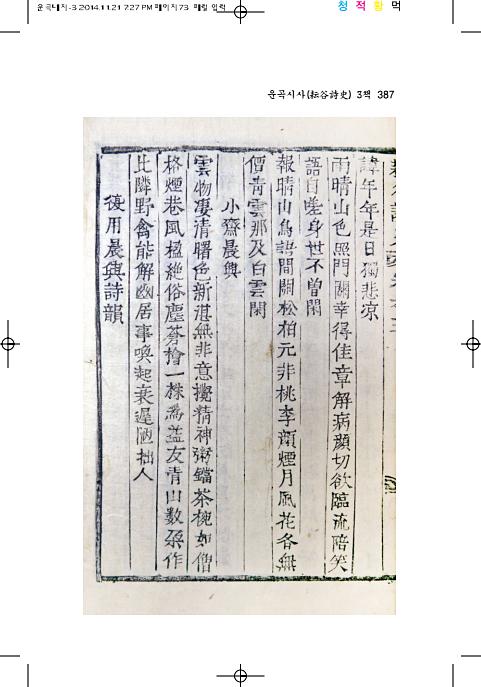 운곡대지-3 2014.11.21 7:27 PM 페이지73 매킬 입력
청 적 황 먹
운곡시사(耘谷詩史) 3책 387
諱年年是日獨悲凉
雨晴山色照門關幸得佳章解病顔切欲臨流陪笑
語自嗟身世不曾閑
報晴山鳥語間關松柏元非桃李顔煙月風花各無
價靑雲那及白雲閑
小齋晨興
雲物凄淸曙色新湛無非意攪精神粥鐺茶椀如僧
格煙巷風櫺絶俗塵蒼檜一株爲益友靑山數朶作
比隣野禽能解幽居事喚起衰遲陋拙人
復用晨興詩韻